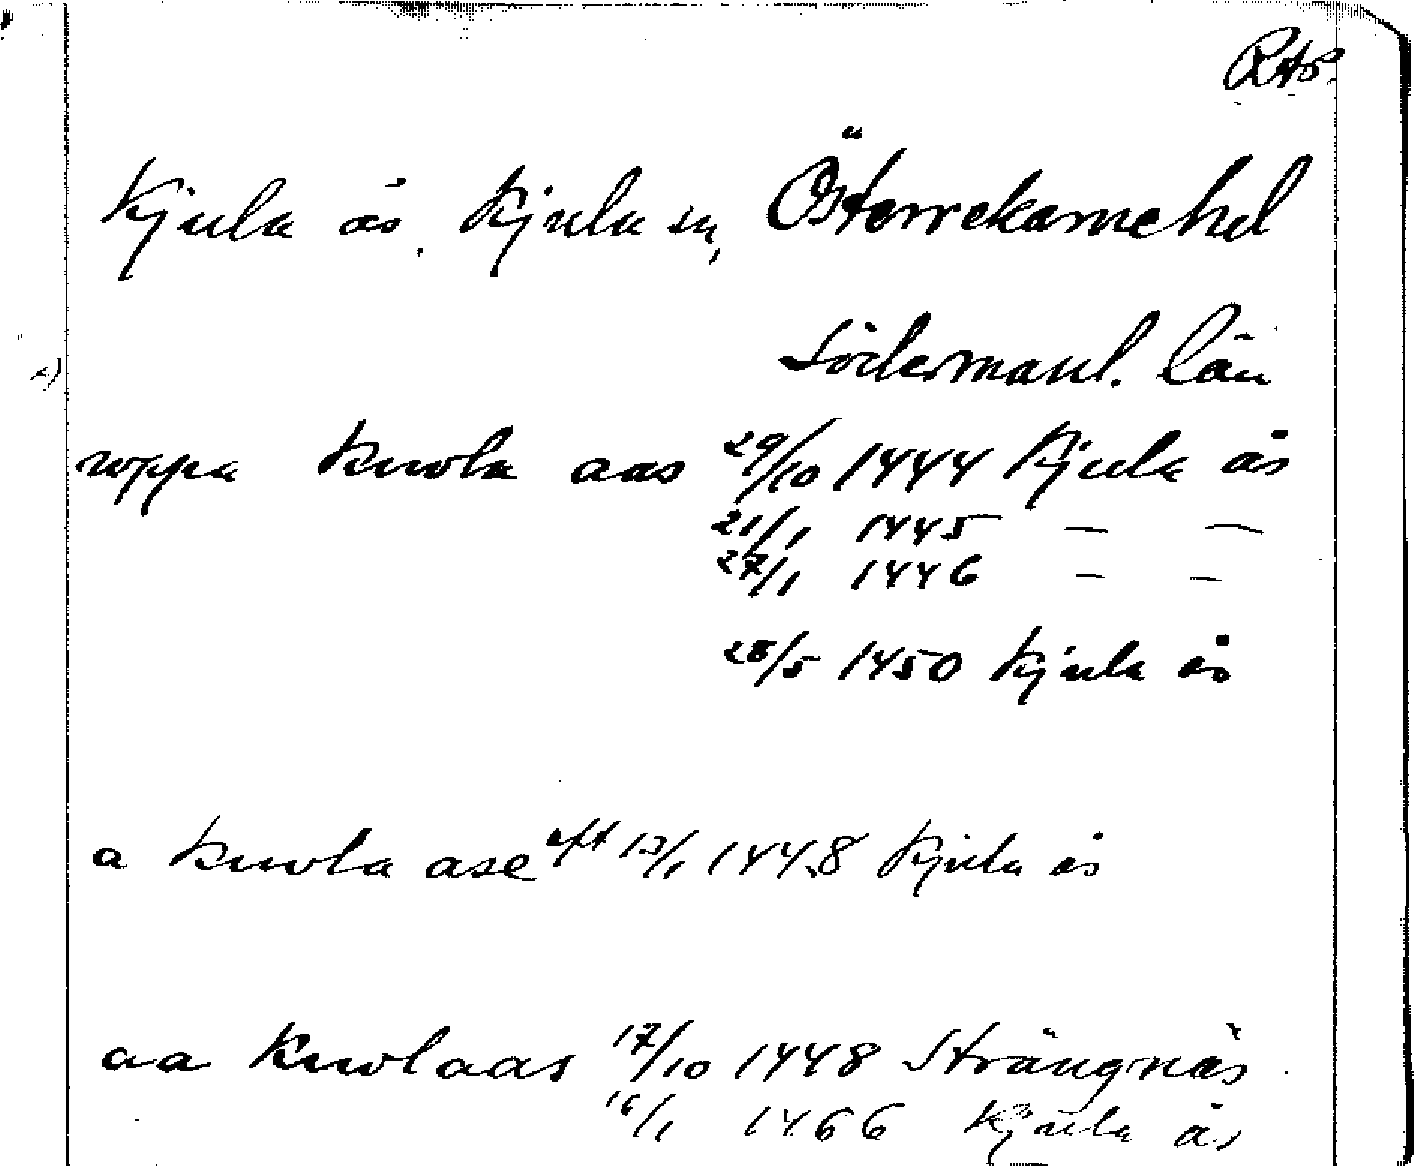 RAP.
Kjula ås, Kjula sn, Österrekarnehd
Södermanl. län
a)
uppa Kuula aas 29/10 1444 Kjula ås
21/1 1445 — —
27/1 1446 — —
28/5 1450 Kjula ås
a Kuula ase eft 13/1 1448 Kjula ås
aa Kuulaas 17/10 1448 Strängnäs
16/1 1466 Kjula ås